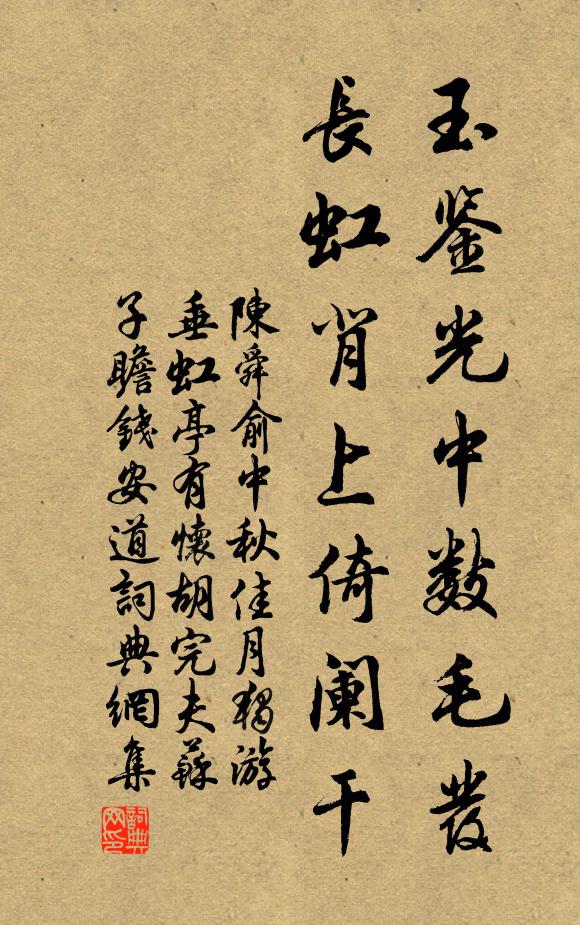 玉鉴光中数毛發
長虹背上倚阑干
陳舜俞中秋佳月獨游
垂虹亭有懷胡完夫蘇
子瞻錢安道詞典網集
詞典
网印